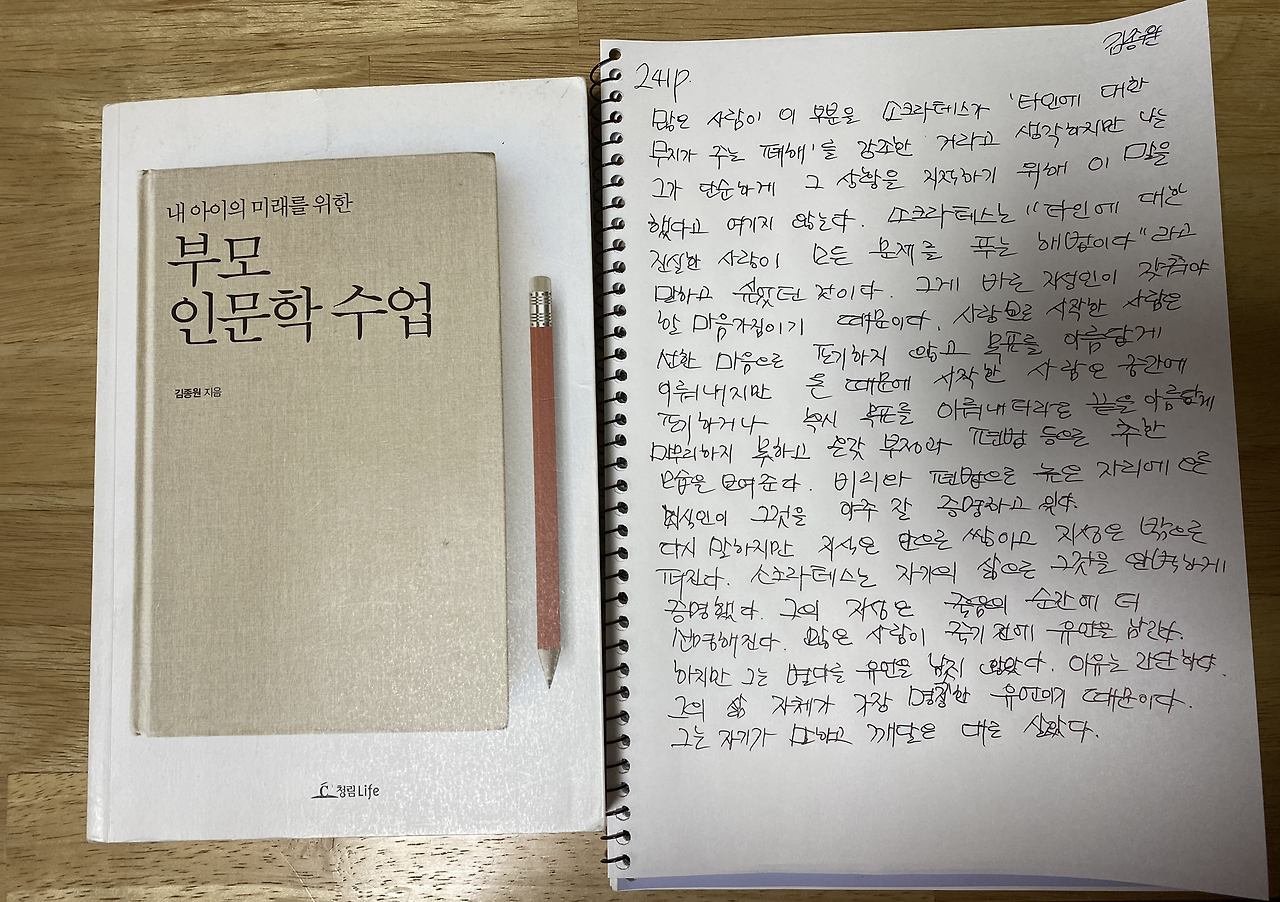 내 아이의 미래를 위한
부모
인문학 수업
김종원 지음
청림Life
김종원
241p.
많은 사람이 이 부분을 소크라테스가 '타인에 대한
무지가 주는 폐해'를 강조한 거라고 생각하지만 나는
그가 단순하게 그 상황을 지적하기 위해 이 말을
했다고 여기지 않는다. 소크라테스는 "타인에 대한
진실한 사랑이 모든 문제를 푸는 해법이다"라고
말하고 싶었던 것이다. 그게 바로 지성인이 갖춰야
할 마음가짐이기 때문이다. 사랑으로 시작한 사람은
선한 마음으로 포기하지 않고 목표를 아름답게
이뤄내지만 때문에 시작한 사람은 중간에
포기하거나 혹시 목표를 이뤄내더라도 끝을 아름답게
마무리하지 못하고 온갖 부정과 편법 등으로 추한
모습을 보여준다. 비리와 편법으로 높은 자리에 오른
지식인이 그것을 아주 잘 증명하고 있다.
다시 말하지만 지식은 안으로 쌓이고 지성은 밖으로
퍼진다. 소크라테스는 자기의 삶으로 그것을 완벽하게
증명했다. 그의 지성은 죽음의 순간에 더
선명해진다. 많은 사람이 죽기 전에 유언을 남긴다.
하지만 그는 별다를 유언을 남기지 않았다. 이유는 간단하다.
그의 삶 자체가 가장 명확한 유언이기 때문이다.
그는 자기가 말하고 깨달은 대로 살았다.